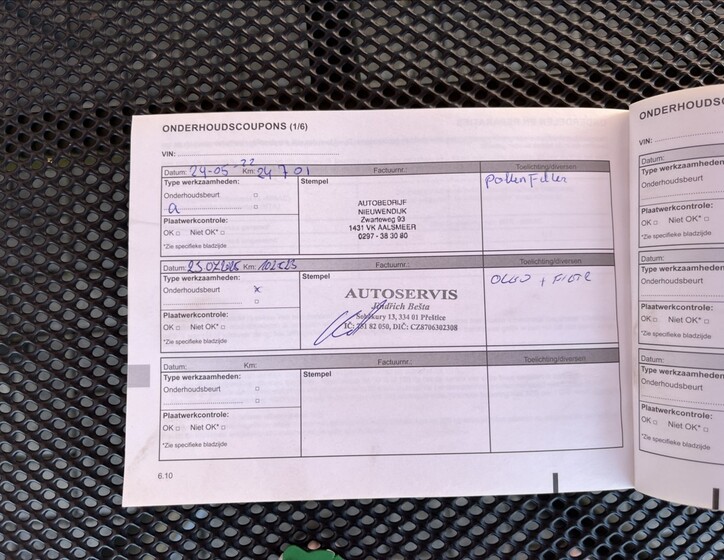 ONDERHOUDSCOUPONS (1/6)
VIN:
Datum: 24-05-22 Km: 24701 Factuurnr.: Toelichting/diversen
Type werkzaamheden: Stempel Pollen Filter
Onderhoudsbeurt
a
AUTOBEDRIJF
NIEUWENDIJK
Zwarteweg 93
1431 VK AALSMEER
0297 - 38 30 80
Plaatwerkcontrole:
OK Niet OK*
*Zie specifieke bladzijde
Datum: Km: Factuurnr.: Toelichting/diversen
Type werkzaamheden: Stempel
Onderhoudsbeurt x
AUTOSERVIS
Jindřich Bešta
13, 334 01 Přeštice
82 050, DIČ: CZ8706302308
Plaatwerkcontrole:
OK Niet OK*
*Zie specifieke bladzijde
Datum: Km: Factuurnr.: Toelichting/diversen
Type werkzaamheden: Stempel
Onderhoudsbeurt
Plaatwerkcontrole:
OK Niet OK*
*Zie specifieke bladzijde
6.10
ONDERHOUDSC
VIN:
Datum:
Type werkzaamheden:
Onderhoudsbeurt
Plaatwerkcontrole:
OK Niet OK*
*Zie specifieke bladzijde
Datum:
Type werkzaamheden:
Onderhoudsbeurt
Plaatwerkcontrole:
OK Niet OK*
*Zie specifieke bladzijde
Datum:
Type werkzaamheden:
Onderhoudsbeurt
Plaatwerkcontrole:
OK Niet OK*
*Zie specifieke bladzijde